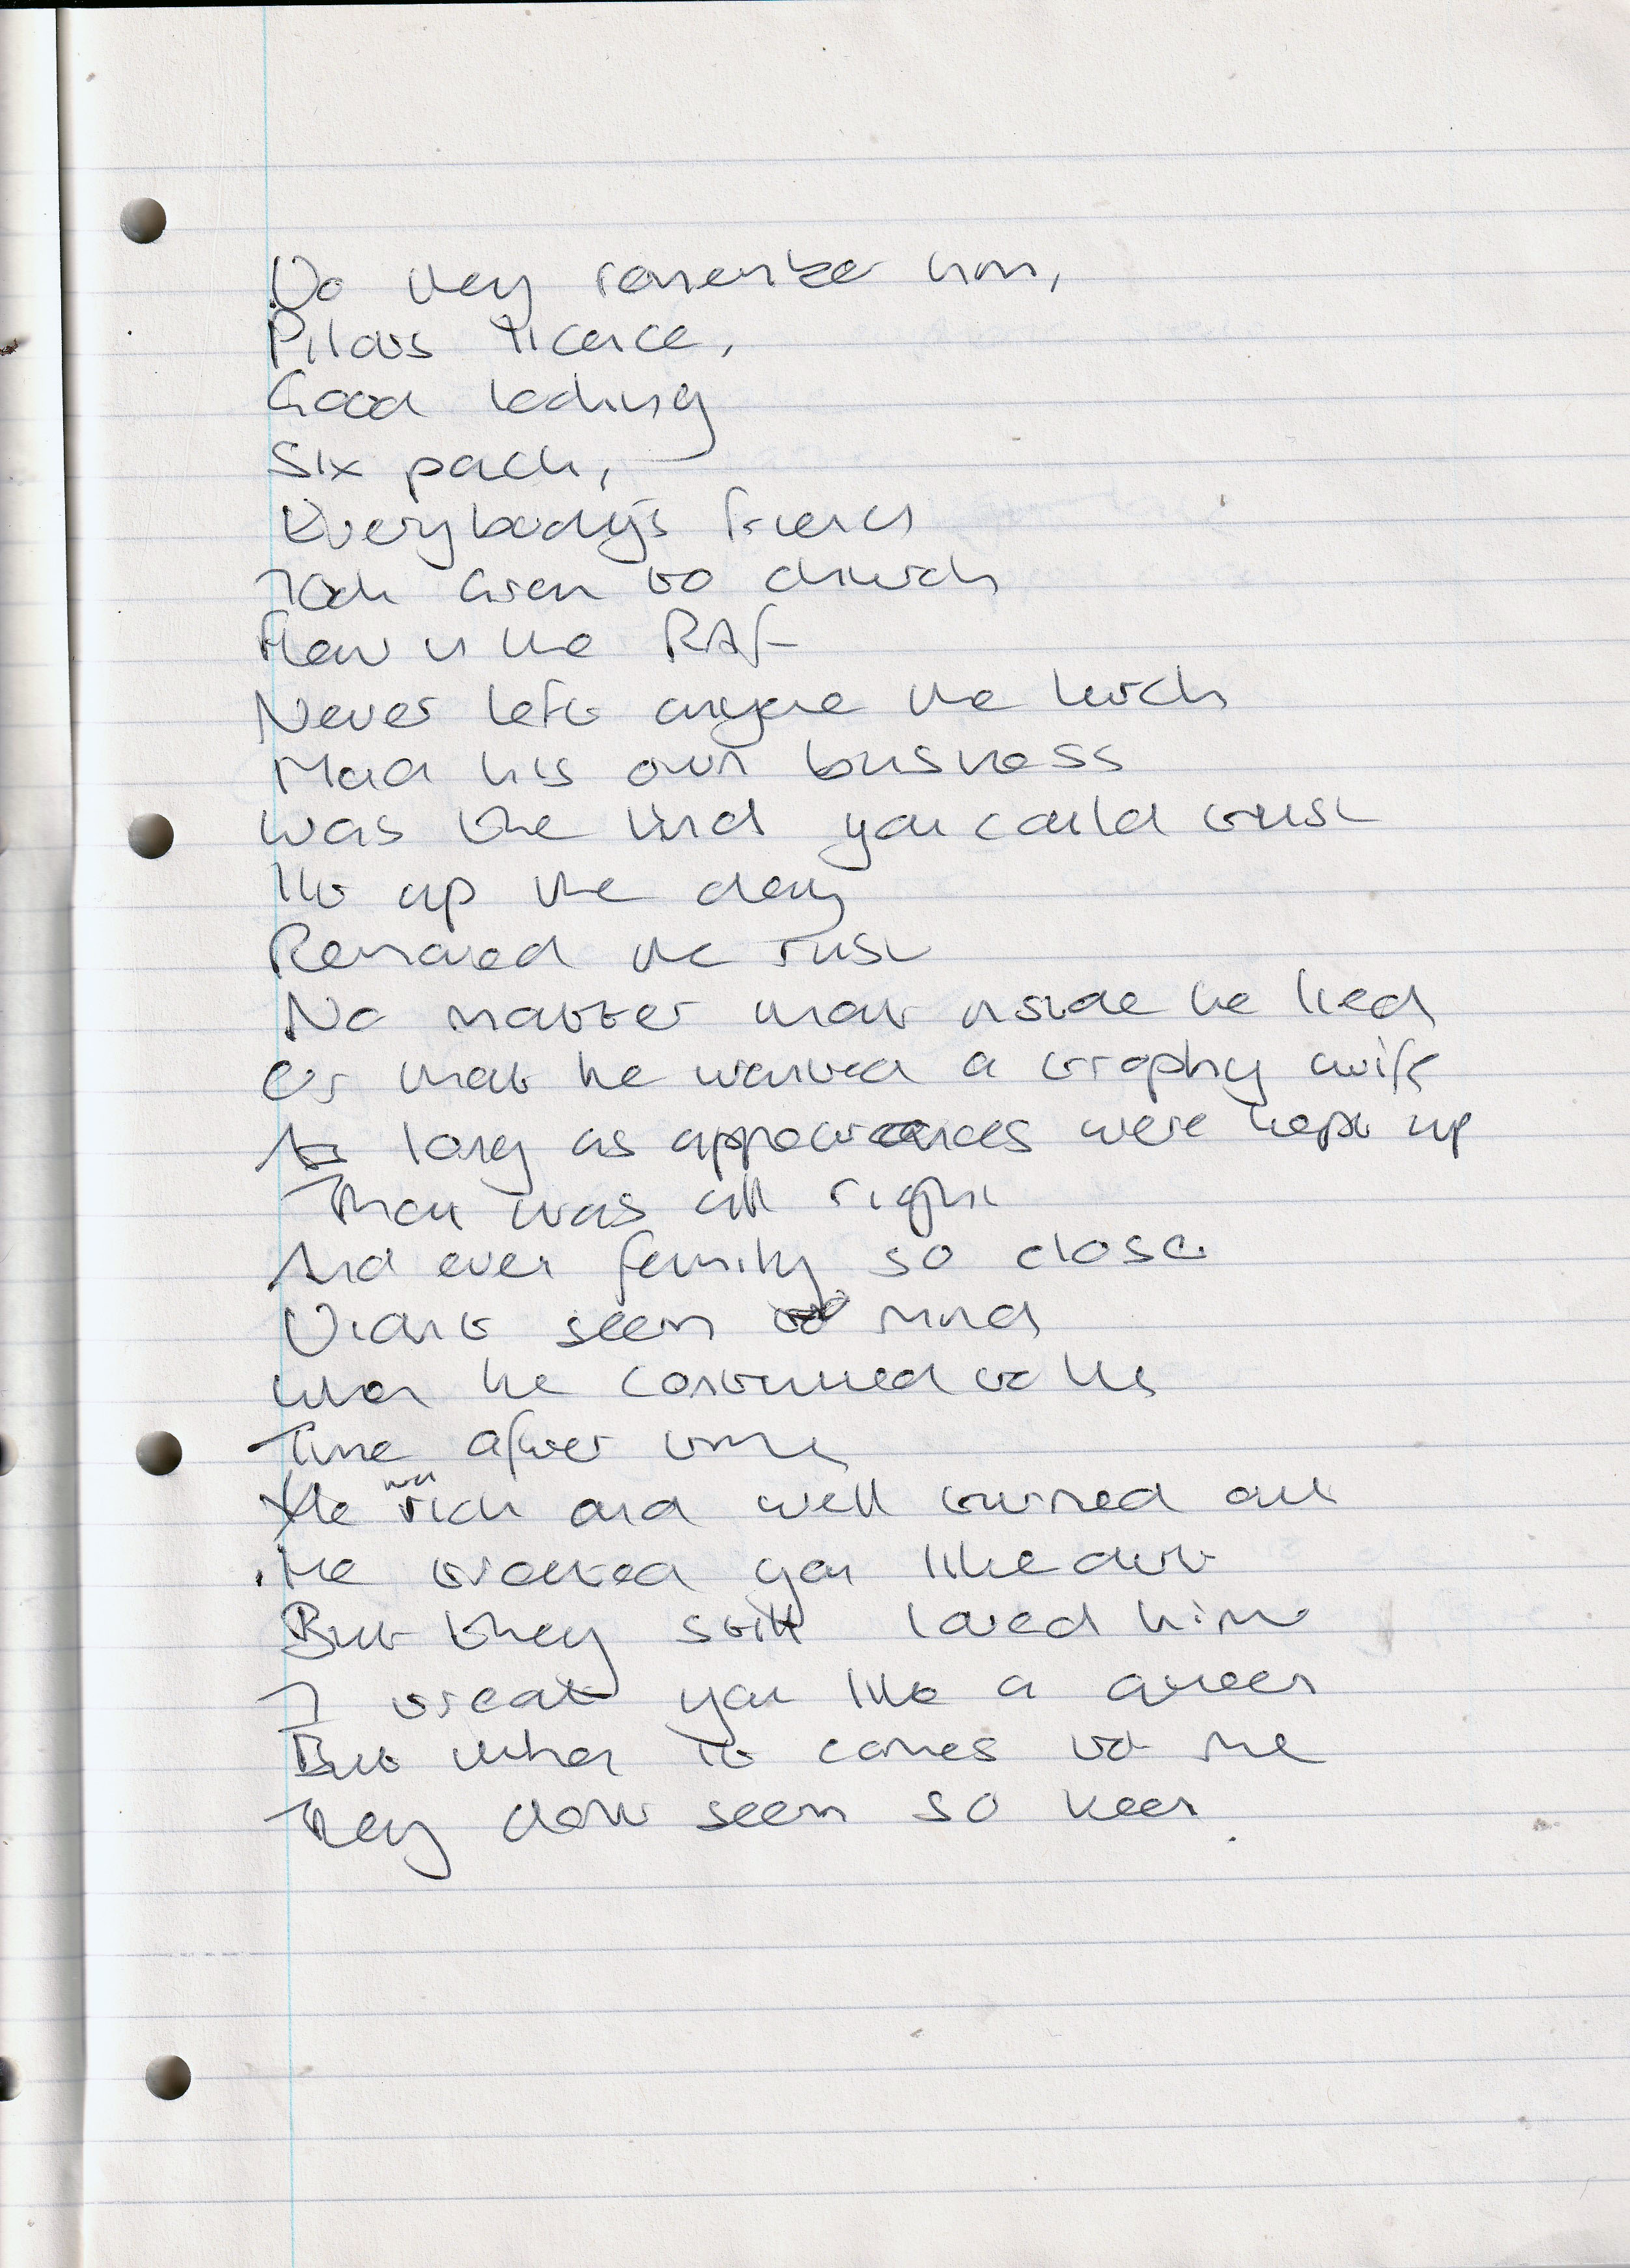 Do they remember him,
Pilots licence,
Good looking
Six pack,
Everybody's friend
Took Gran to church
Flew in the RAF
Never left anyone the lurch
Had his own business
Was the kind you could trust
Lit up the day
Removed the rust
No matter that inside he lied
Or that he wanted a trophy wife
As long as appearances were kept up
That was all right
And even family so close
Didnt seem to mind
When he continued to lie
Time after time
He was rich and well turned out
He treated you like dirt
But they still loved him
I treat you like a queen
But when it comes to me
They dont seem so keen.